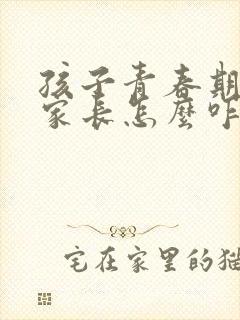 孩子青春期
家长怎麼咋
宅在家里的猫